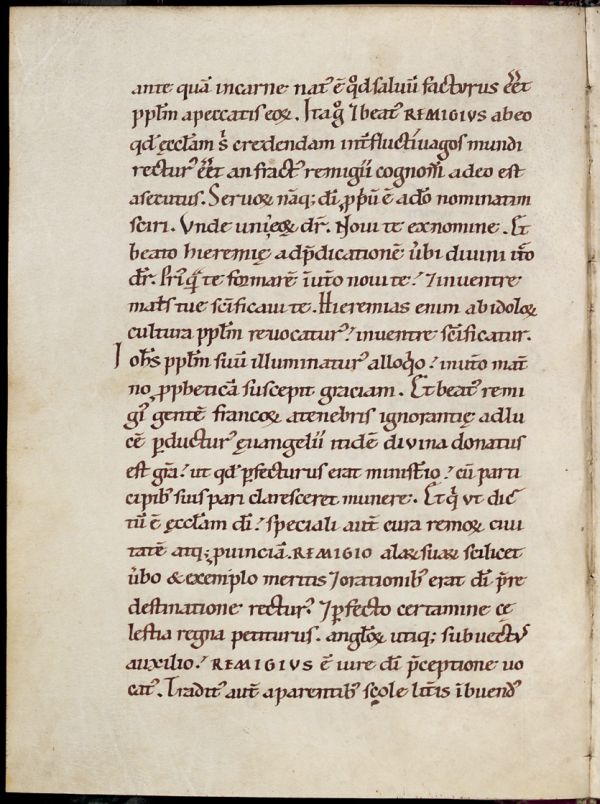 ante quā incarne nat᷒ ē qd̓ saluū facturus e̅e̅t
pp̄lm apeccatis eoꝝ. Itaq̓ ⁊beat᷒ REMIGIUS abeo
qd̓ ęcclām s̄ credendam int̄ fluctiuagos mundi
rectur᷒ e̅e̅t an fract᷒ remigii cognom̄ adeo est
asecutus. Seruoꝝ nāq; dī ꝓpū ē ad̄o nominatim
sciri. Vnde uni᷒ eoꝝ dr̄. Noui te exnomine. Et
beato hieremię adp̄dicationē ubi diuinit᷒
dr̄. Pri᷒q̄ te formarē īut̄o noui te? ⁊inuentre
mat̄s tue sc̄ificaui te. Hieremias enim ab idoloꝝ
cultura pp̄lm reuocatur᷒? inuentre sc̄ificatur.
Ioh̄s pp̄lm suū illuminatur᷒ alloq̓o? inut̄o mat̄
no, ꝓpheticā suscepit graciam. Et beat᷒ remi
gi᷒ gentē francoꝝ atenebris ignorantię adlu
cē ꝑductur᷒ ęuangelii itidē diuina donatus
est gr̄a? ut qd̓ ꝑfecturus erat minist̄io? cū parti
cipib᷒ suis pari claresceret munere. Et q̓ ut dic
tū ē ęcclām dī? speciali aut̄ cura remoꝝ ciui
tatē atq; ꝓuinciā. REMIGIO alaꝝ suaꝝ scilicet
u̇bo & exemplo meritis ⁊orationib᷒ erat dī p̄re
destinatione rectur᷒? ⁊ꝑfecto certamine ce
lestia regna petiturus. angl̄oꝝ utiq; subuectu
auxilio? REMIGIUS ē iure dī p̄ceptione uo
cat᷒. Tradit᷒ aut̄ aparentib᷒ scole lit̄is ībuend᷒